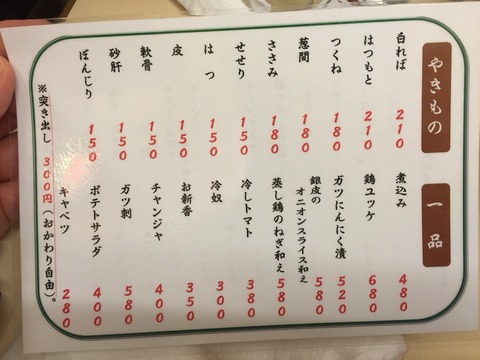 やきもの
白ればー 210
はつもと 210
つくね 180
葱間 180
ささみ 180
せせり 150
はつ 150
皮 150
軟骨 150
砂肝 150
ぼんじり 150
一品
煮込み 480
鶏ユッケ 680
ガツにんにく漬 520
銀皮の
オニオンスライス和え 580
蒸し鶏のねぎ和え 580
冷しトマト 380
冷奴 300
お新香 350
チャンジャ 400
ガツ刺 580
ポテトサラダ 400
キャベツ 280
※突き出し 300円(おかわり自由)。